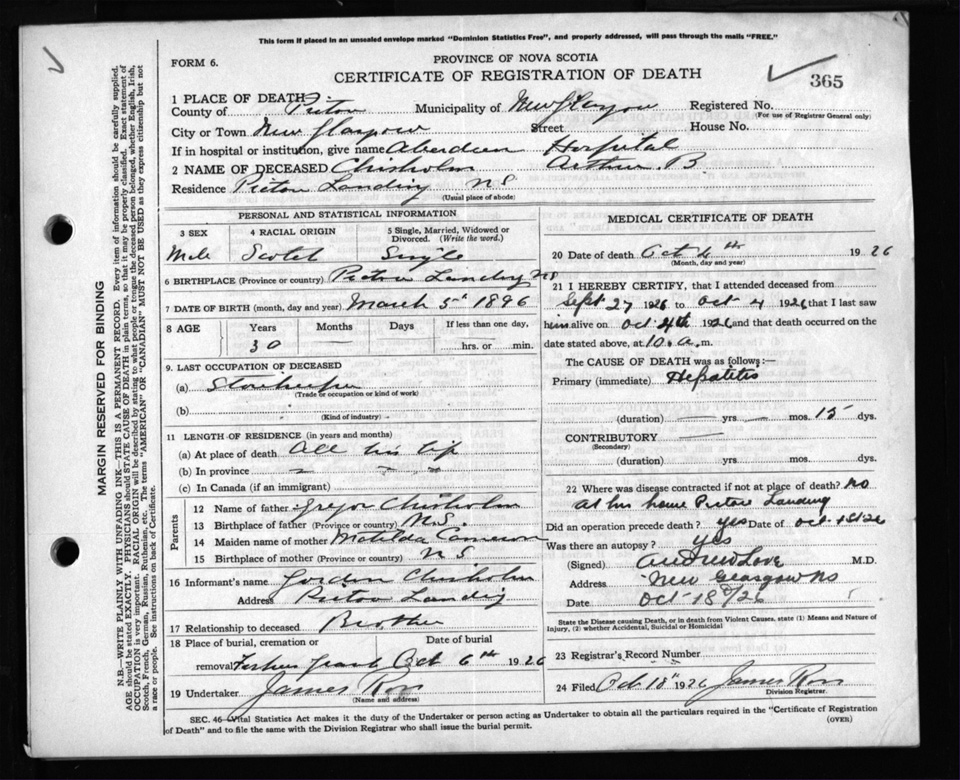 This form if placed in an unsealed envelope marked "Dominion Statistics Free", and properly addressed, will pass through the mails "FREE."
FORM 6.
PROVINCE OF NOVA SCOTIA
CERTIFICATE OF REGISTRATION OF DEATH
365
1 PLACE OF DEATH
County of Pictou Municipality of New Glasgow Registered No.
(For use of Registrar General only)
City or Town New Glasgow Street House No.
If in hospital or institution, give name Aberdeen Hospital
2 NAME OF DECEASED Chisholm Arthur B
Residence Pictou Landing N S
(Usual place of abode)
PERSONAL AND STATISTICAL INFORMATION
3 SEX
4 RACIAL ORIGIN
5 Single, Married, Widowed or Divorced. (Write the word.)
Male Scotch Single
6 BIRTHPLACE (Province or country) Pictou Landing NS
7 DATE OF BIRTH (month, day and year) March 5th 1896
8 AGE
Years Months Days If less than one day,
30 hrs. or min.
9. LAST OCCUPATION OF DECEASED
(a) Storekeeper
(Trade or occupation or kind of work)
(b)
(Kind of industry)
11 LENGTH OF RESIDENCE (in years and months)
(a) At place of death All his life
(b) In province
(c) In Canada (if an immigrant)
Parents
12 Name of father Chisholm
13 Birthplace of father (Province or country) N.S.
14 Maiden name of mother Matilda Cameron
15 Birthplace of mother (Province or country) N S
16 Informant's name Gordon Chisholm
Address Pictou Landing
17 Relationship to deceased Brother
18 Place of burial, cremation or removal
Date of burial
Oct 6th 1926
19 Undertaker James Ross
(Name and address)
MEDICAL CERTIFICATE OF DEATH
20 Date of death Oct 4th 1926
(Month, day and year)
21 I HEREBY CERTIFY, that I attended deceased from
Sept 27 1926 to Oct 4 1926 that I last saw
him alive on Oct 4th 1926 and that death occurred on the
date stated above, at 10. a. m.
The CAUSE OF DEATH was as follows:—
Primary (immediate) Hepatitis
(duration) yrs mos. 15 dys.
CONTRIBUTORY
(Secondary)
(duration) yrs. mos. dys.
22 Where was disease contracted if not at place of death? No
At his home Pictou Landing
Did an operation precede death? yes Date of Oct 1st/26
Was there an autopsy? yes
(Signed) Andrew Love M.D.
Address New Glasgow NS
Date Oct 18/26
State the Disease causing Death, or in death from Violent Causes, state (1) Means and Nature of Injury, (2) whether Accidental, Suicidal or Homicidal
23 Registrar's Record Number
24 Filed Oct 18th 1926 James Ross
Division Registrar.
SEC. 46—Vital Statistics Act makes it the duty of the Undertaker or person acting as Undertaker to obtain all the particulars required in the "Certificate of Registration
of Death" and to file the same with the Division Registrar who shall issue the burial permit.
(OVER)
MARGIN RESERVED FOR BINDING
N.B.—WRITE PLAINLY WITH UNFADING INK—THIS IS A PERMANENT RECORD. Every item of information should be carefully supplied.
AGE should be stated EXACTLY. PHYSICIANS should STATE CAUSE OF DEATH in plain terms, so that it may be properly classified. Exact statement of
OCCUPATION is very important. RACIAL ORIGIN will be described by stating to what people or tongue the deceased person belonged, whether English, Irish,
Scotch, French, German, Russian, Ruthenian, etc. The terms "AMERICAN" OR "CANADIAN" MUST NOT BE USED as they express citizenship but not
a race or people. See instructions on back of Certificate.